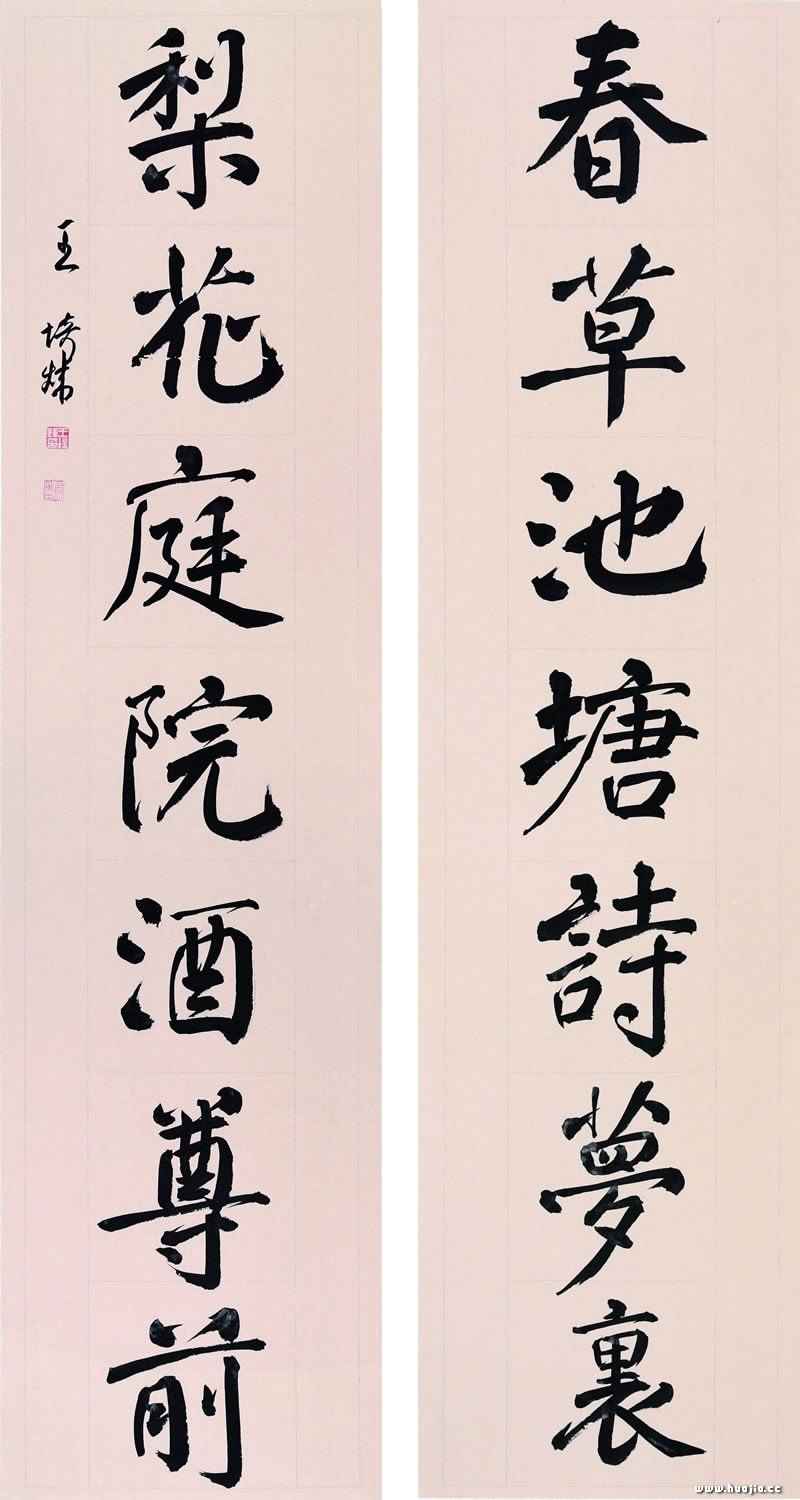 春草池塘詩夢裏
梨花庭院酒尊前
王
www.huajia.cc